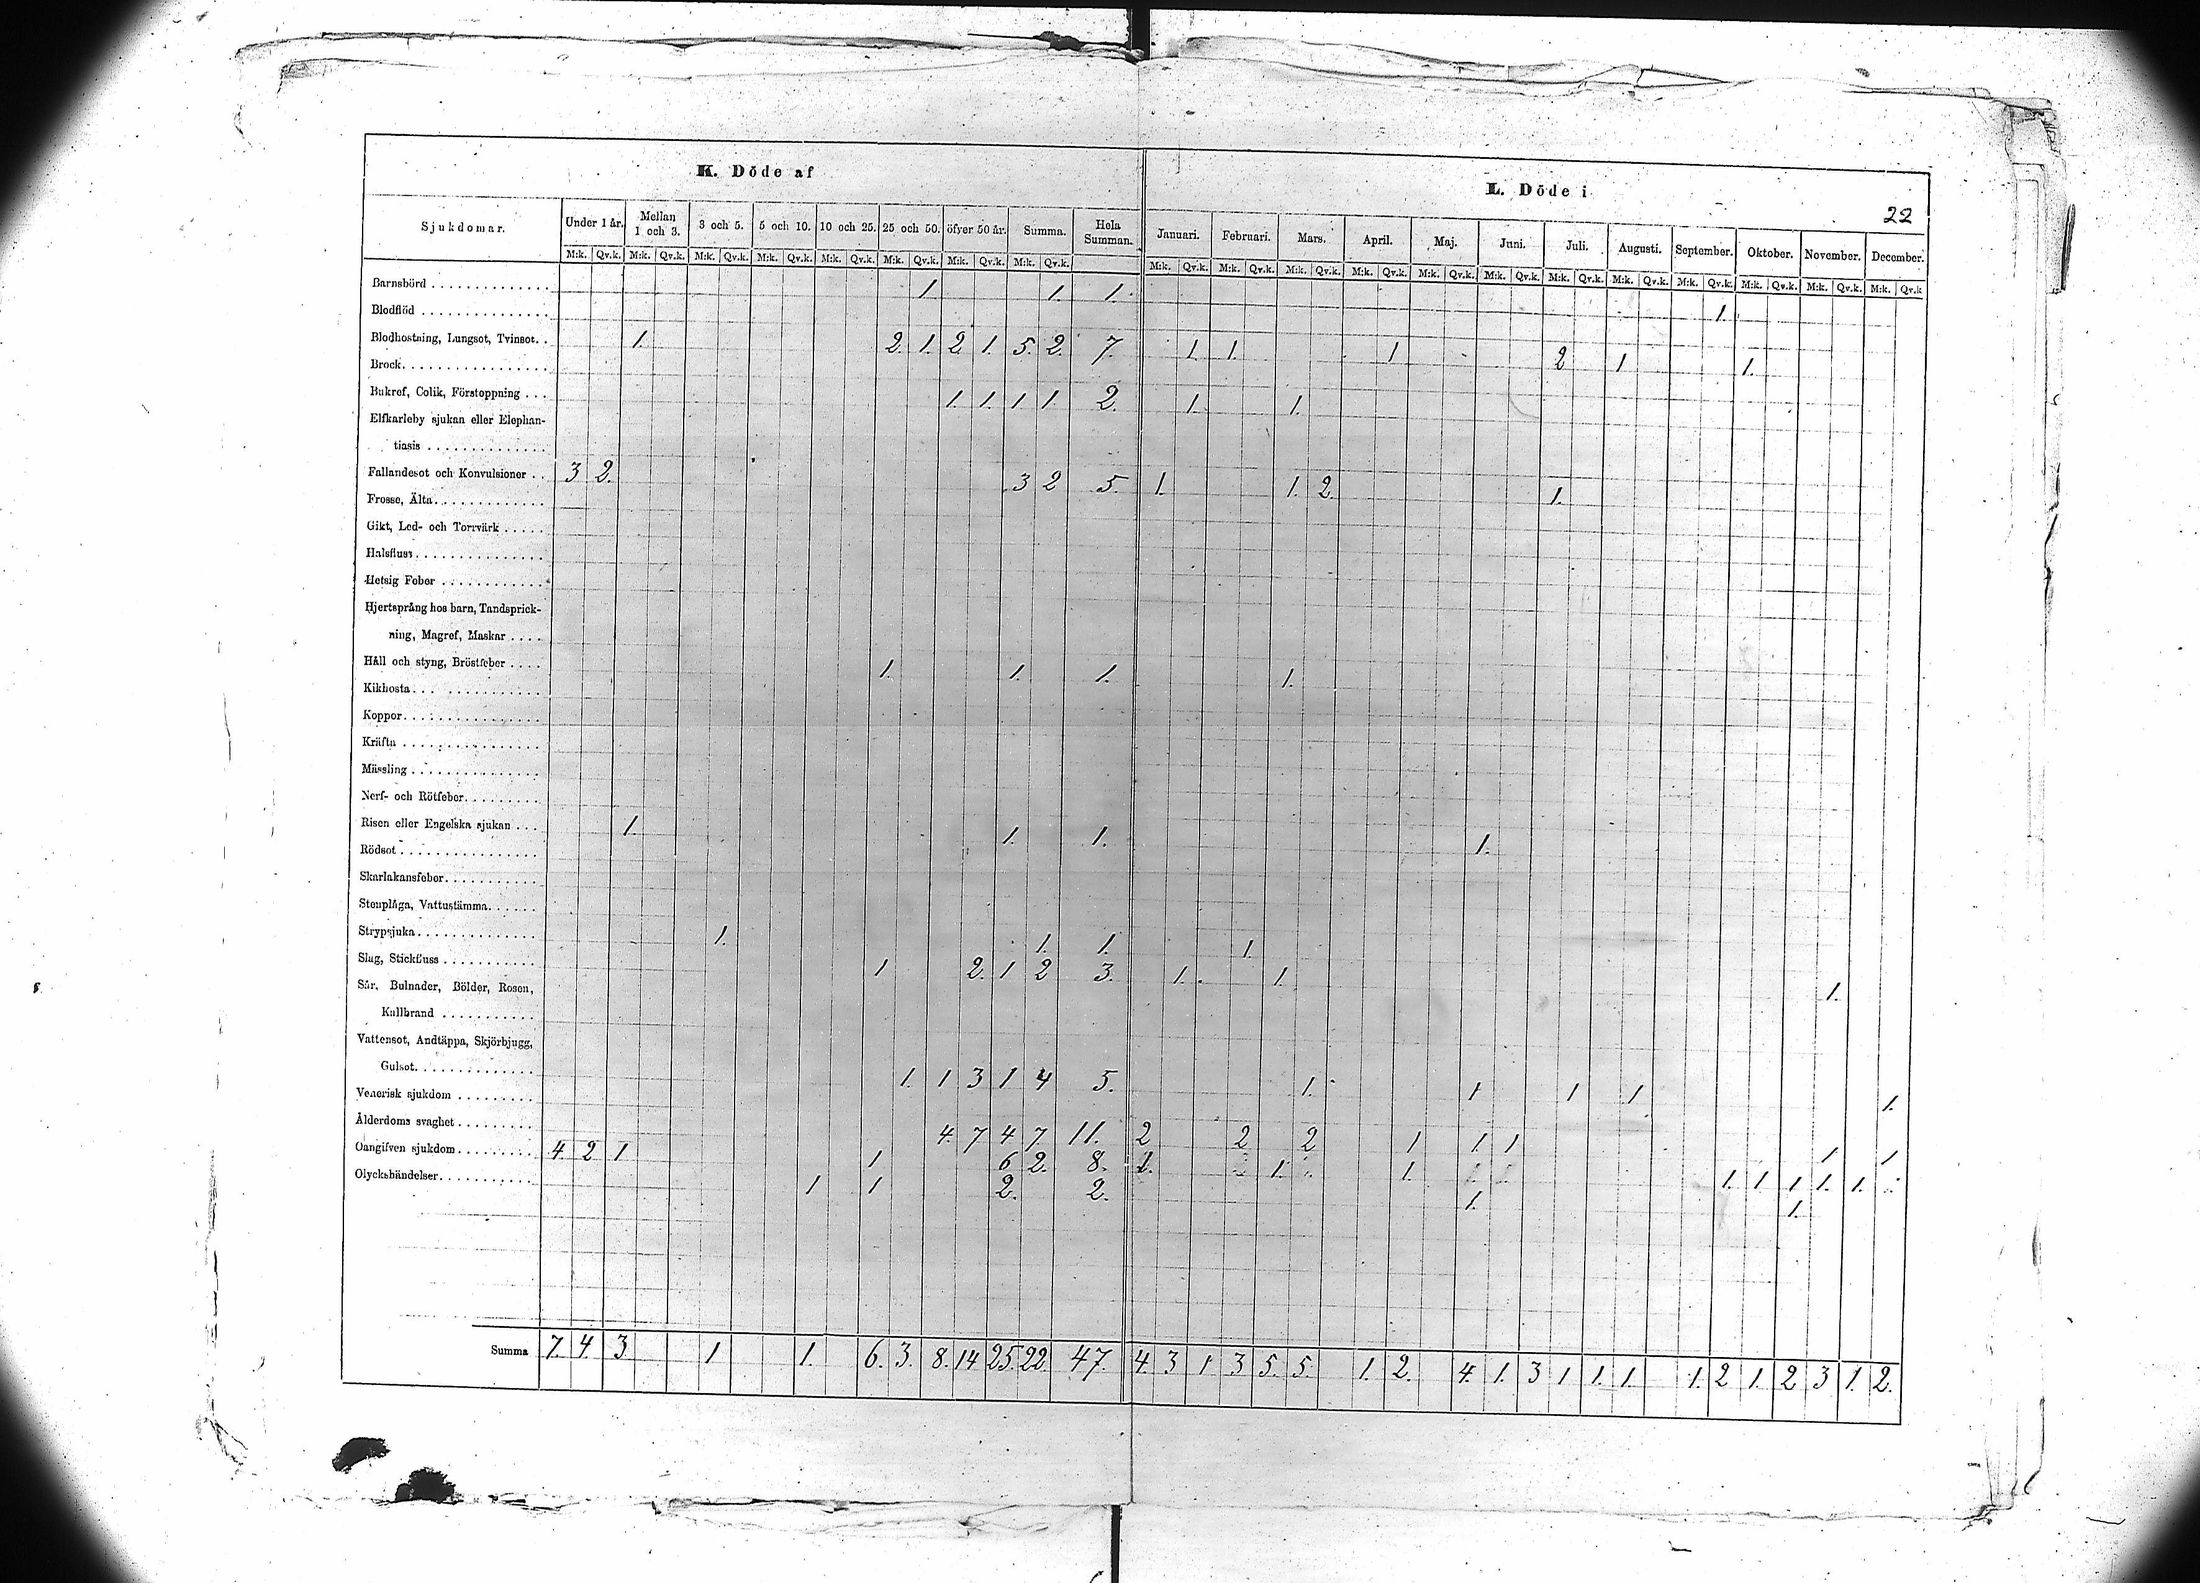 K. Döde af
L. Döde i
22
Sjukdomar. Under 1 år. Mellan 1 och 3. 3 och 5. 5 och 10. 10 och 25. 25 och 50. öfver 50 år. Summa. Hela Summan. Januari. Februari. Mars. April. Maj. Juni. Juli. Augusti. September. Oktober. November. December.
M:k. Qv.k. M:k. Qv.k. M:k. Qv.k. M:k. Qv.k. M:k. Qv.k. M:k. Qv.k. M:k. Qv.k. M:k. Qv.k. M:k. Qv.k. M:k. Qv.k. M:k. Qv.k. M:k. Qv.k. M:k. Qv.k. M:k. Qv.k. M:k. Qv.k. M:k. Qv.k. M:k. Qv.k. M:k. Qv.k. M:k. Qv.k. M:k. Qv.k
Barnsbörd 1 1 1. 1.
Blodflöd
Blodhostning, Lungsot, Tvinsot. 1. 2. 1. 2. 1. 5. 2. 7. 1 1. 1 2 1 1.
Brock
Bukref, Colik, Förstoppning 1. 1. 1 1. 2. 1. 1.
Elfkarleby sjukan eller Elephan-
tiasis
Fallandesot och Konvulsioner 3 2. 3 2 5. 1. 1. 2. 1.
Frosse, Älta
Gikt, Led- och Torrvärk
Halsfluss
Hetsig Feber
Hjertsprång hos barn, Tandsprick-
ning, Magref, Maskar
Håll och styng, Bröstfeber 1. 1. 1. 1.
Kikhosta
Koppor
Kräfta
Mässling
Nerf- och Rötfeber
Risen eller Engelska sjukan 1. 1. 1. 1.
Rödsot
Skarlakansfeber
Stenplåga, Vattustämma
Strypsjuka 1. 1. 1. 1.
Slag, Stickfluss 1 2. 1 2 3. 1. 1. 1.
Sår, Bulnader, Bölder, Rosen,
Kallbrand
Vattensot, Andtäppa, Skjörbjugg,
Gulsot 1. 1 3 1 4 5. 1. 1 1 1. 1.
Venerisk sjukdom
Ålderdoms svaghet 4. 7 4 7 11. 2 2 2 1 1 1 1 1
Oangifven sjukdom 4 2 1 1 6 2. 8. 1. 1. 1. 1. 1 1 1. 1.
Olyckshändelser 1 1 2. 2. 1. 1.
Summa 7. 4. 3 1 1. 6. 3. 8. 14 25. 22. 47. 4. 3 1. 3 5. 5. 1. 2. 4. 1. 3 1 1. 1. 1. 2 1. 2 3 1. 2.